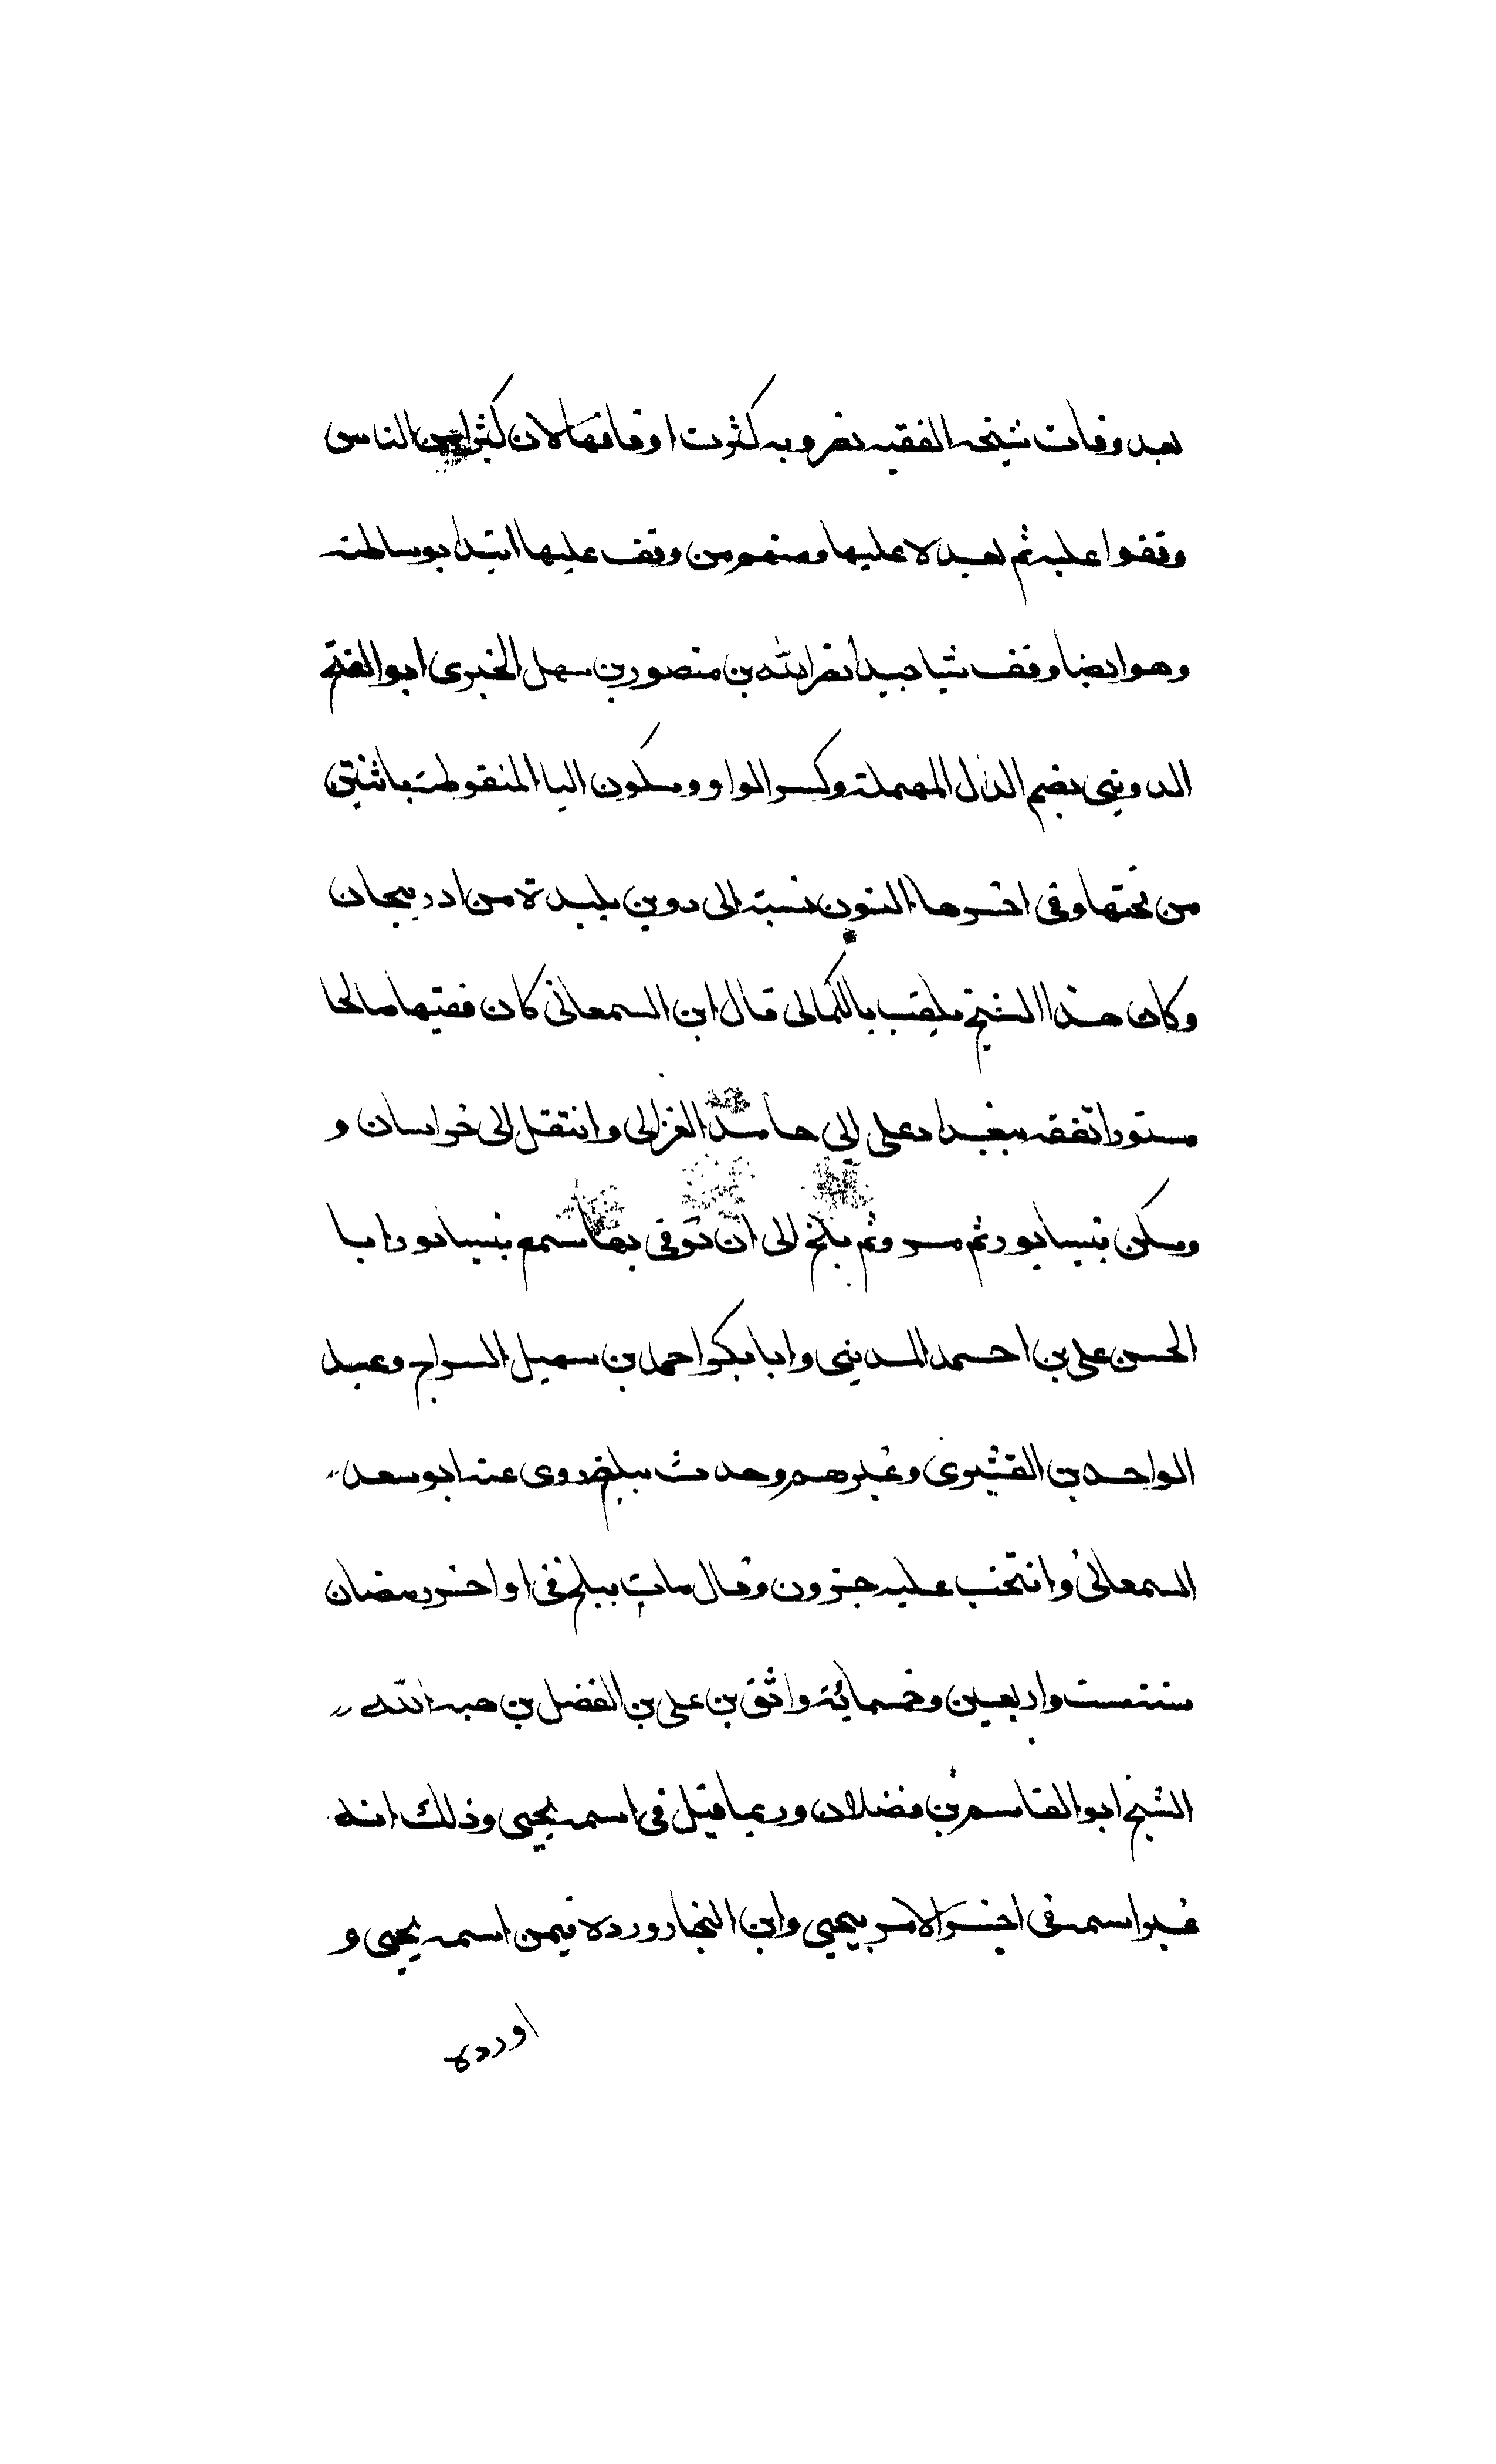 بعد وفات شيخه الفقيه نصر وبه كثرت اوقافها لان كثيرا من الناس
وقفوا عليه ثم بعده عليها ومنهم من وقف عليها ابتدا بوساطته
وهو ايضا وقف شيا جيدا نصرالله بن منصور بن سهل الخبرى ابو الفتح
الدوينى بضم الدال المهملة وكسر الواو وسكون اليا المنقوطة باثنتين
من تحتها وفى اخرها النون نسبة الى دوين بليدة من ادربيجان
وكان هذا الشيخ يلقب بالكمالى قال ابن السمعانى كان فقيها صالحا
مستورا تفقه ببغداد على ابى حامد الغزالى وانتقل الى خراسان و
وسكن بنيسابور ثم مرو ثم بلخ الى ان توفى بها سمع بنيسابور ابا
الحسن على بن احمد المدينى وابا بكر احمد بن سهيل السراج وعبد
الواحد بن القشيرى وغيرهم وحدث ببلخ روى عنه ابو سعد
السمعانى وانتخب عليه جزون وقال مات ببلخ فى اواخر رمضان
سنة ست واربعين وخمسمائة واثق بن على بن الفضل بن هبة الله
الشيخ ابو القاسم بن فضلان وربما قيل فى اسمه يحيى وذلك انه
غير اسمه فى اخر الامر بيحيى وابن النجار ورده فيمن اسمه يحيى و
اورده